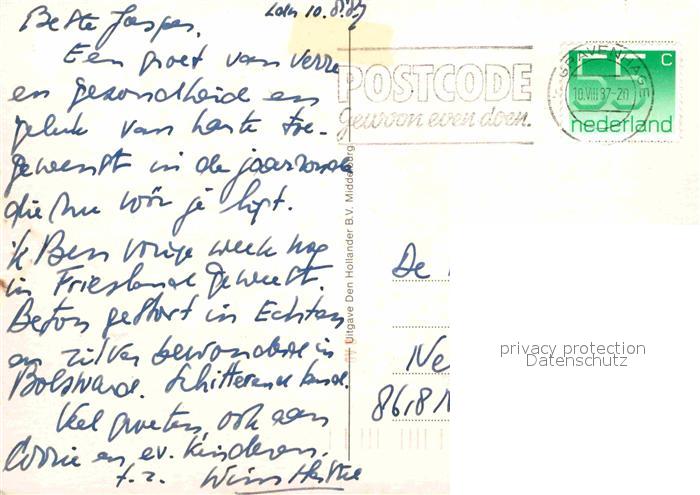 10.8.87
Beste Jasper,
Een groet van verre
en gezondheid en
geluk van harte toe-
gewenst in de jaarronde
die nu vóór je ligt.
ik Ben vorige week nog
in Friesland geweest.
Beton gestort in Echten
en zilver bewonderd in
Bolsward. Schitterend land.
Veel groeten, ook aan
Corrie en ev. kinderen.
t.z. Wim
POSTCODE
gewoon even doen.
'S-GRAVENHAGE
10.VIII.87-20
55 C
nederland
Uitgave Den Hollander B.V. Middelburg
De
Ne
8618
privacy protection
Datenschutz